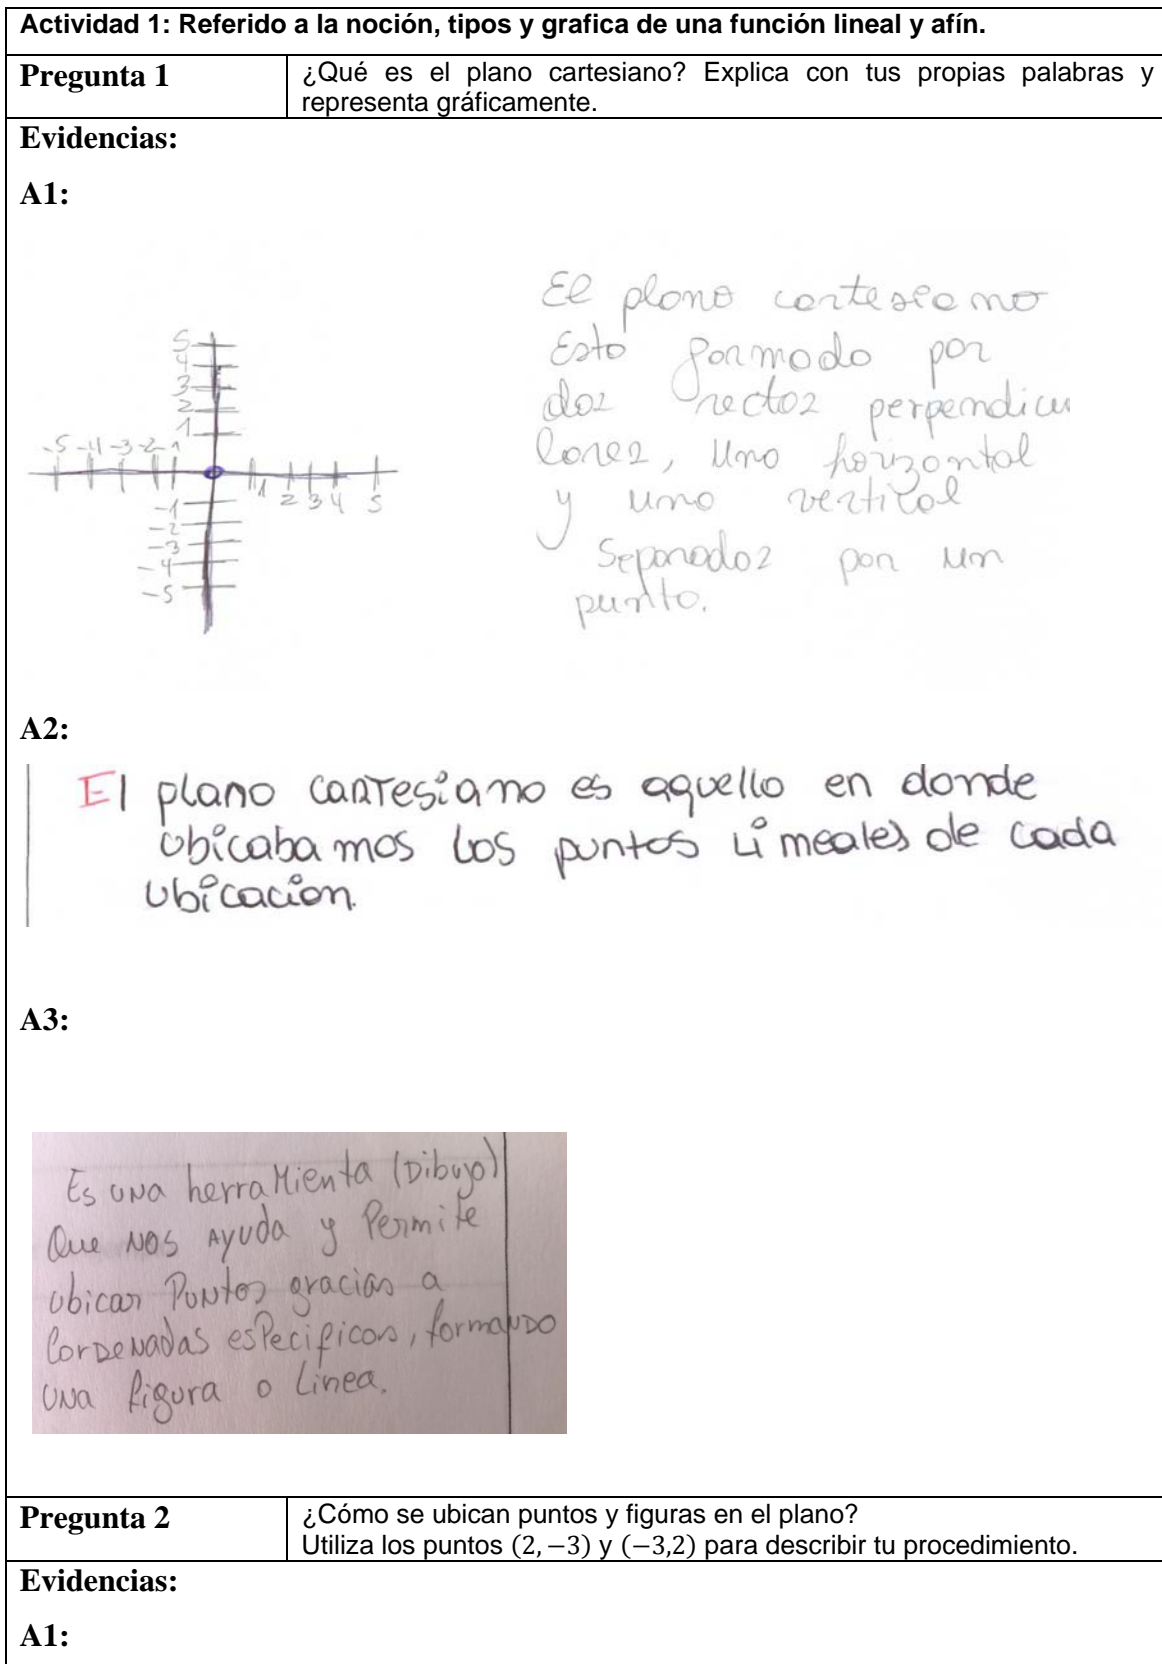 Actividad 1: Referido a la noción, tipos y grafica de una función lineal y afín.
Pregunta 1
¿Qué es el plano cartesiano? Explica con tus propias palabras y
representa gráficamente.
Evidencias:
A1:
5
4
3
2
1
-5 -4 -3 -2 -1
1 2 3 4 5
-1
-2
-3
-4
-5
El plano cartesiano
Esta formado por
dos rectas perpendicu
lares, una horizontal
y una vertical
Separados por un
punto.
A2:
El plano cartesiano es aquello en donde
ubicabamos los puntos lineales de cada
ubicacion.
A3:
Es una herramienta (Dibujo)
Que nos Ayuda y Permite
ubicar Puntos gracias a
Cordenadas especificas, formando
una figura o Linea.
Pregunta 2
¿Cómo se ubican puntos y figuras en el plano?
Utiliza los puntos (2, −3) y (−3,2) para describir tu procedimiento.
Evidencias:
A1: